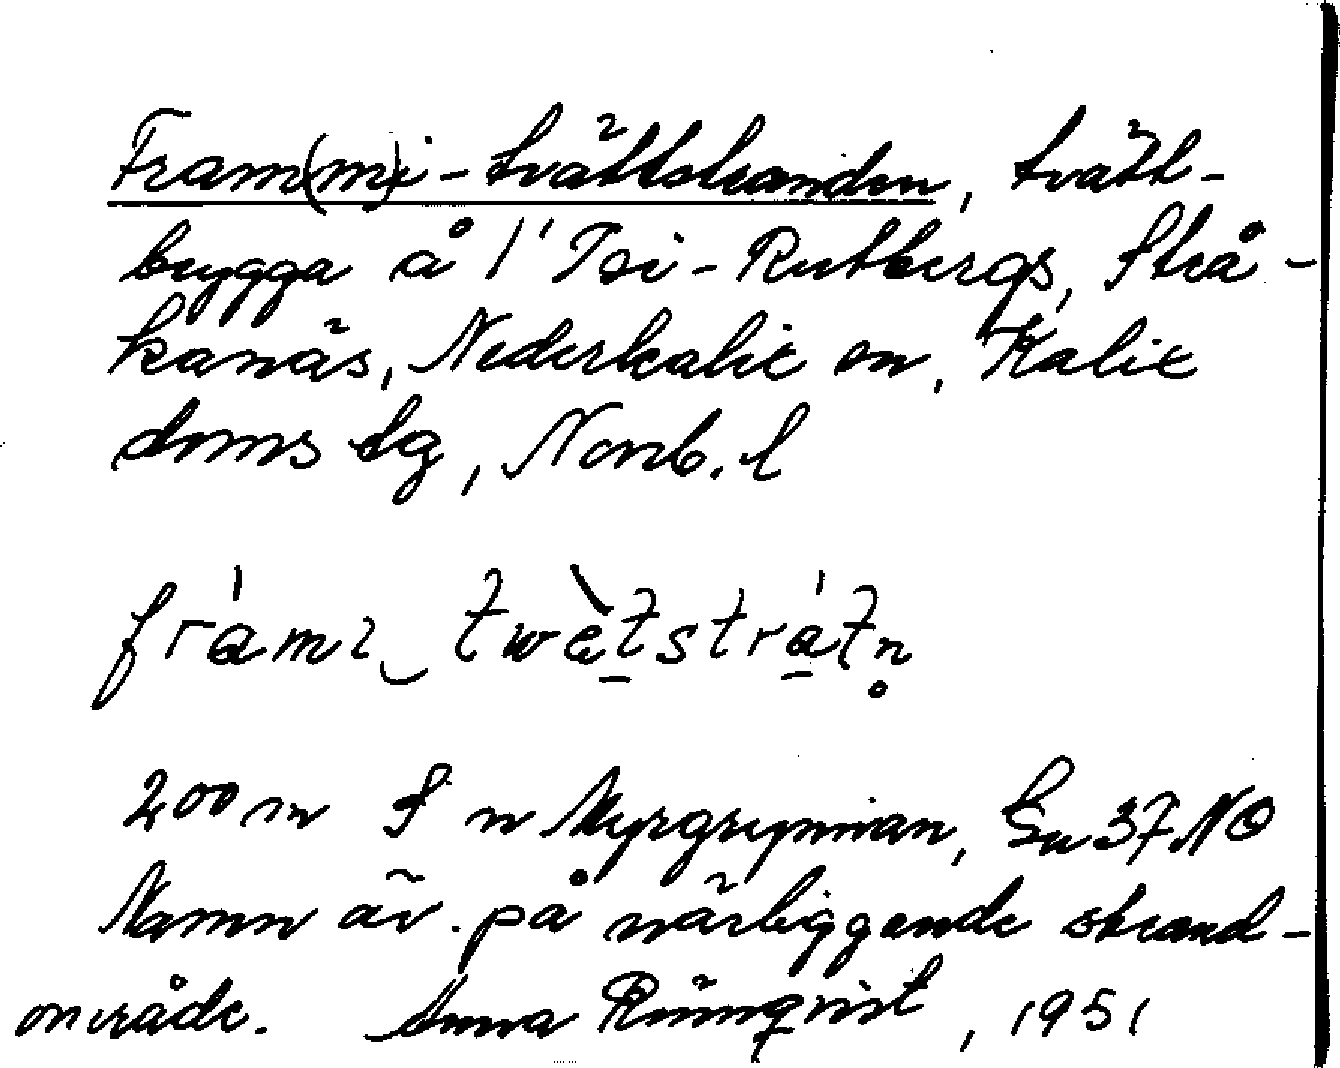 Fram(m)i-tvättstranden, tvätt-
brygga å 1" Isi-Rutbergs, Strå-
kanäs, Nederkalix sn, Kalix
doms lg, Norrb. l
frámı‿twètstrátn̥
200 m S n Myrgrynnan, Gu 37 NO
Namn äv. på närliggande strand-
område. Anna Rönnqvist, 1951